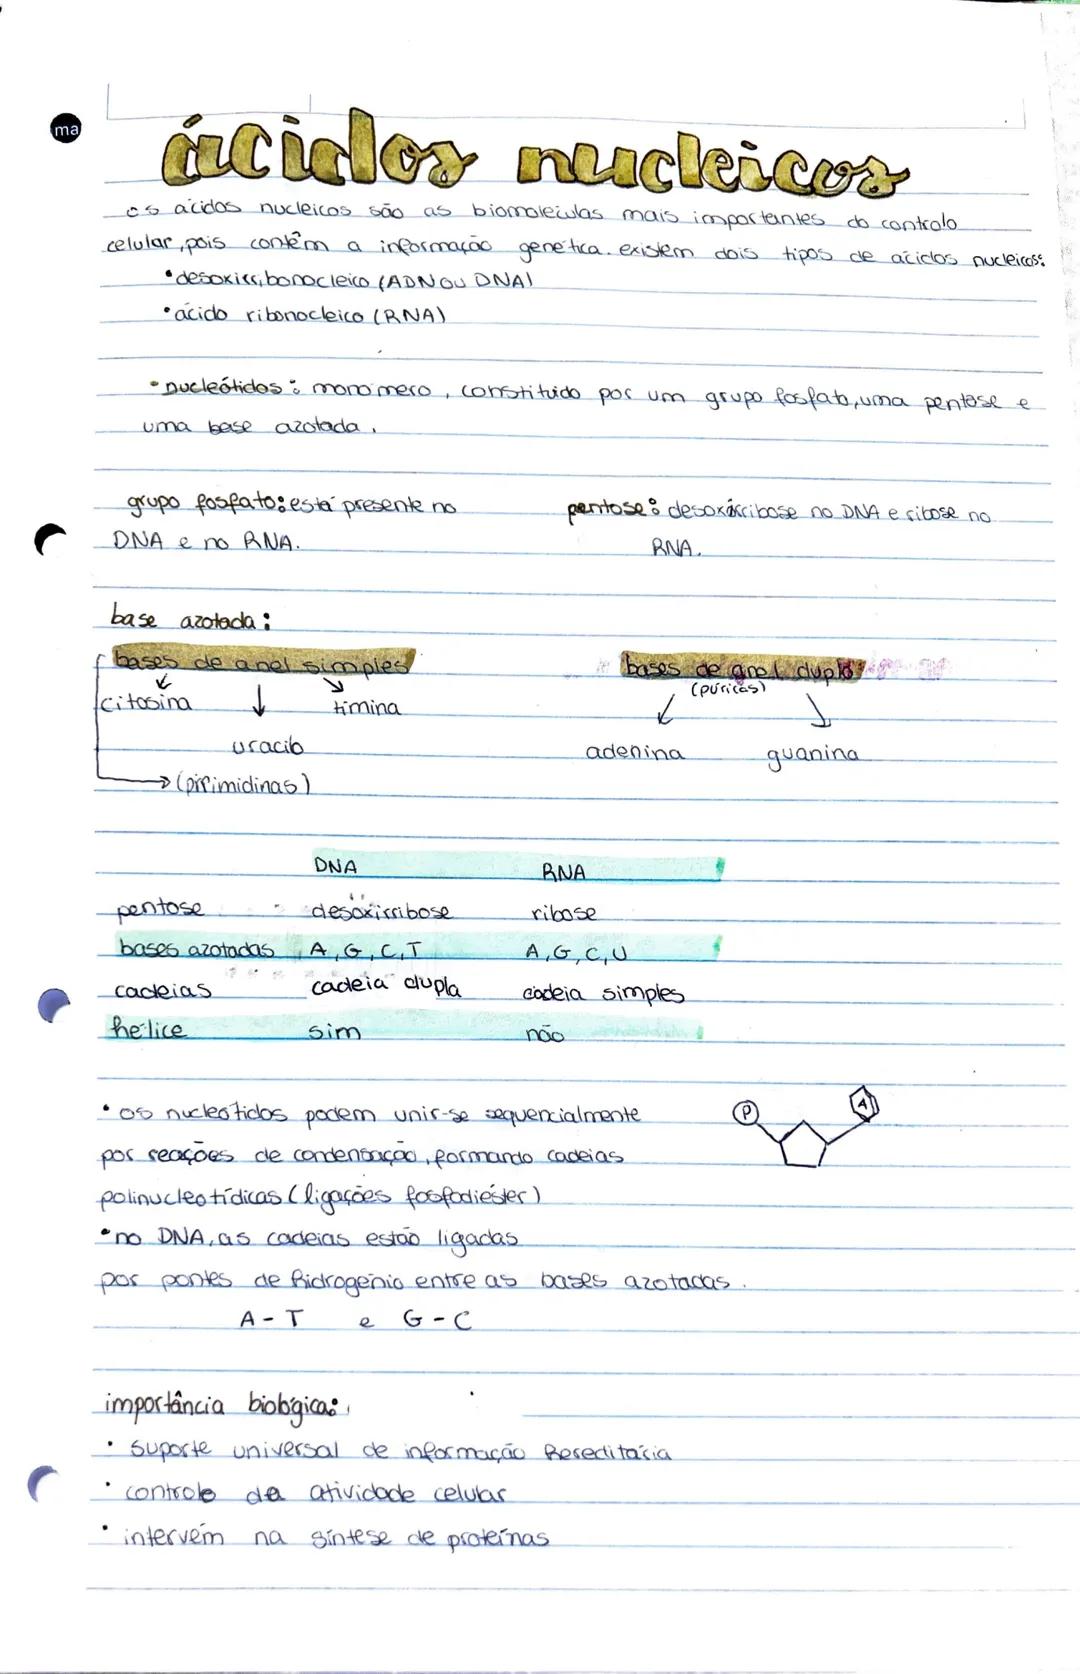 ma
ácidos nucleicos
os ácidos nucleicos são as biomoleculas mais importantes do controlo
celular, pois contêm a informação genética. existem dois tipos de ácidos nucleicos:
• desoxirribonocleico (ADN OU DNA)
• ácido ribonocleico (RNA)
• nucleótidos: monómero, constituido por um grupo fosfato, uma pentose e
uma base azotada.
grupo fosfato: está presente no
DNA e no RNA.
pentose: desoxirribose no DNA e ribose no
RNA.
base azotada:
bases de anel simples
citosina
timina
uracilo
→ (pirimidinas)
bases de anel duplo
(púricas)
adenina guanina
DNA RNA
pentose desoxirribose ribose
bases azotadas A, G, C, T A, G, C, U
cadeias cadeia dupla cadeia simples
hélice sim não
• os nucleotidos podem unir-se sequencialmente
por reações de condensação, formando cadeias
polinucleotídicas (ligações fosfodiéster)
P
A
• no DNA, as cadeias estão ligadas
por pontes de hidrogénio entre as bases azotadas.
A - T e G - C
importância biológica:
• suporte universal de informação hereditária
• controlo da atividade celular
• intervém na síntese de proteínas